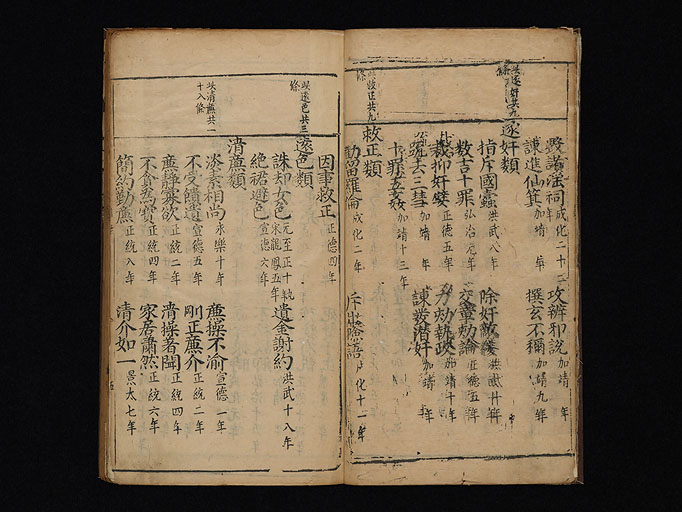 毀諸淫祠 成化二十三年 攻辨邪說 加靖 年
諫進仙箕 加靖 年 撰玄不獮 加靖九年
逐奸類
指斥國蠹 洪武八年 除奸敵 洪武十年
数吉十罪 弘治元年 交章劾論 正德五年
裁抑奸嬖 正德五年 力劾執政 加靖 年
三彗 加靖 年 諫 潛奸 加靖 年
十罪五奸 加靖十三年
救正類
勸留羅倫 成化二年 斥 化十一年
因事救正 正德四年
遠色類
誅却女色 元至正十 宋龍鳳五年 遺金謝約 洪武十八年
絶裙避色 宣德六年
清廉類
淡素相尚 永樂十年 廉操不渝 宣德一年
不受饋遺 宣德五年 剛正廉介 正統二年
廉靜寡欲 正統二年 清操著聞 正統四年
不貪為寶 正統四年 家居蕭然 正統六年
簡約勤廉 正統八年 清介如一 景太七年
逐奸共九條
救正共九條
遠色共三條
清廉共一十八條